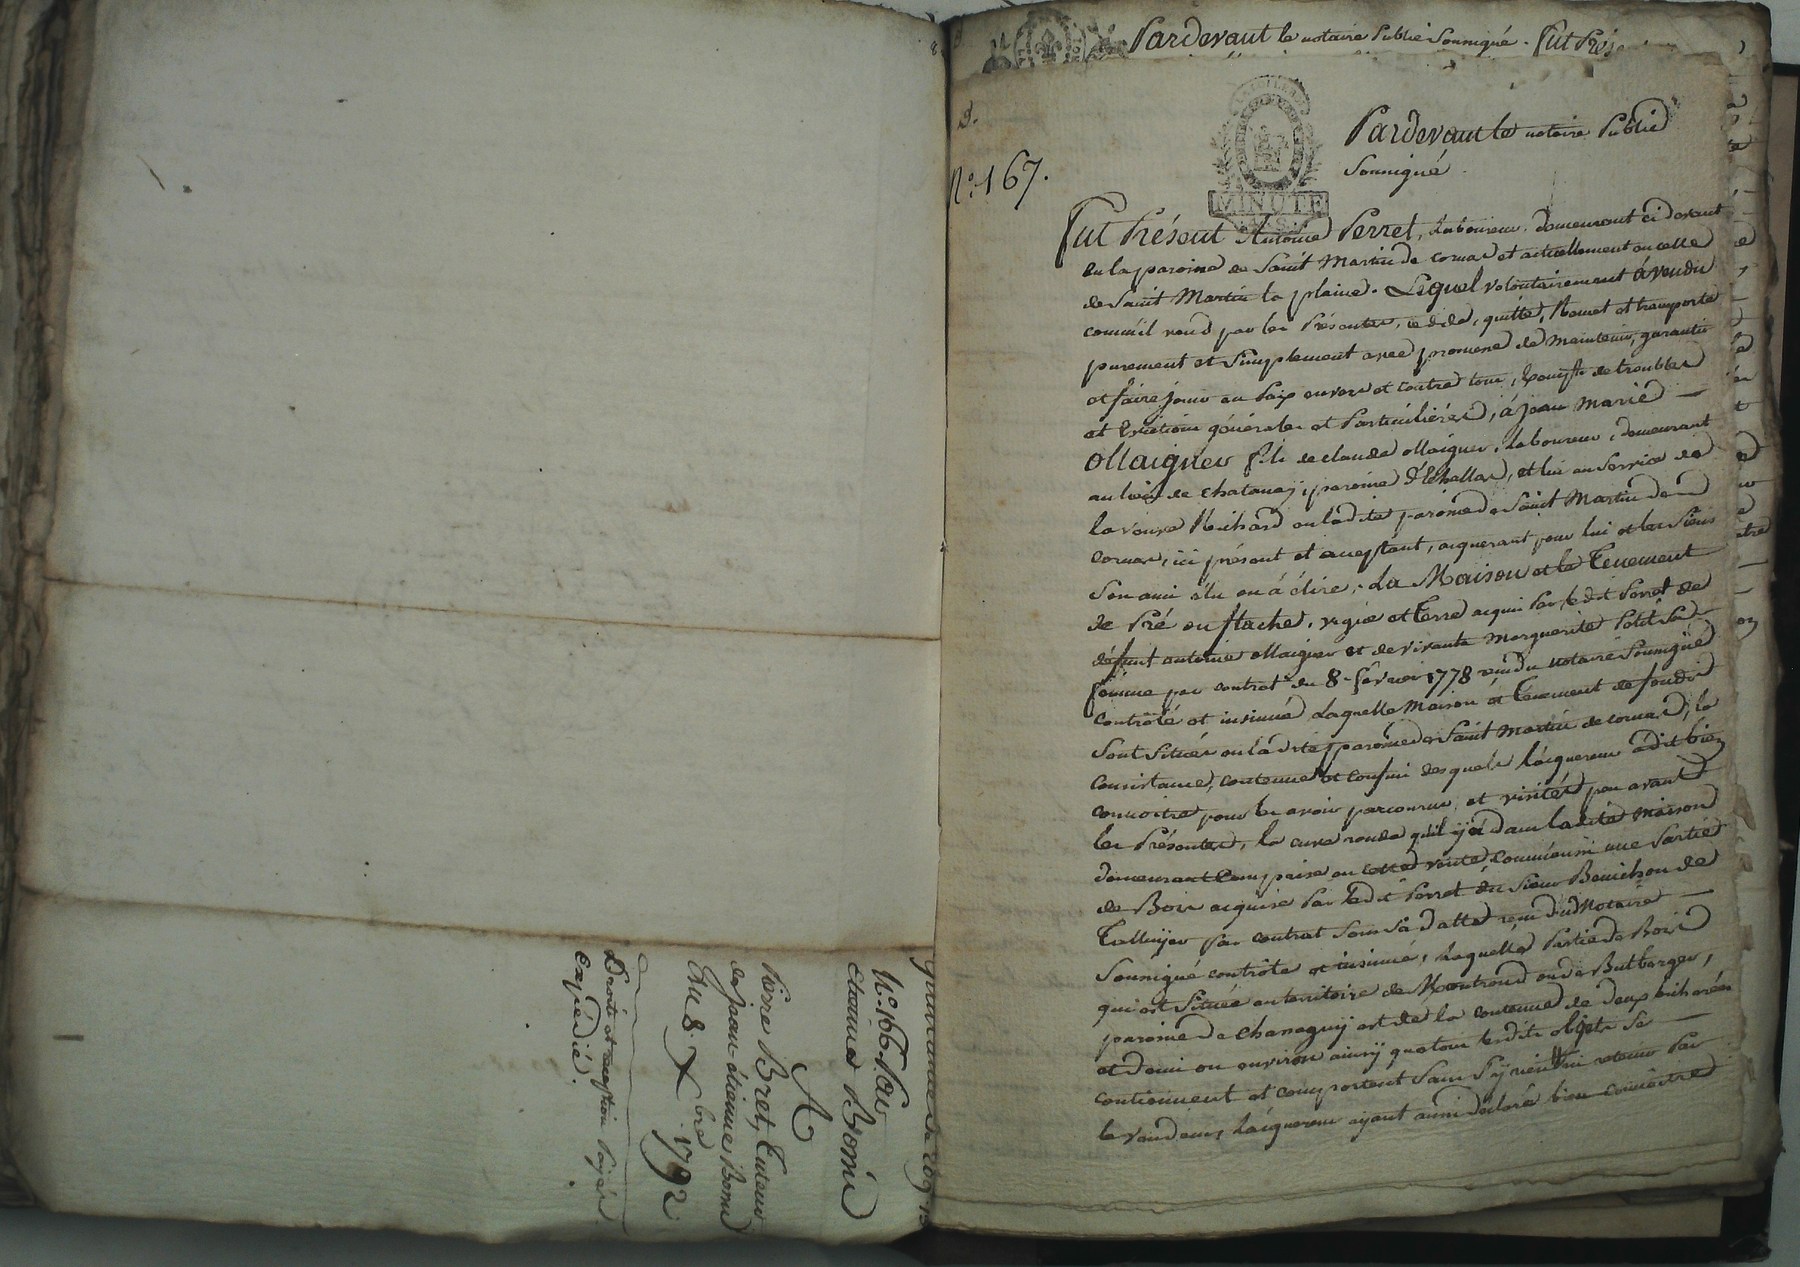 quittance de 209.
N.° 166. Par
etienne Bonin
A
Pierre Bret, tuteur
de jean-étienne Bonin
Du 8. Xbre 1792
Droits et question payés.
Expédié.
Pardevant le notaire Public Soussigné. fut Prés
N.° 167.
MINUTE
Pardevant le notaire Public
Soussigné.
fut Présent Antoine Perret, Laboureur, demeurant ci devant
en la paroisse de Saint Martin de cornas et actuellement en celle
de Saint Martin la plaine. Lequel volontairement à vendu
comm'il vend par les Présentes, cede, quitte, Remet et transporte
purement et simplement avec promesse de maintenir, garantir
et faire jouir en Paix envers et contre tous, Exempt de troubles
et Evictions générales et Particulières, à jean Marie
ollaignier fils de claude ollaignier, laboureur, demeurant
au lieu de chatanay, paroisse d'Echallas, et lui au Service de
la veuve Richard en ladite paroisse de Saint Martin de
cornas, ici présent et acceptant, acquerant pour lui et les Siens
Son ami élu ou à élire, La Maison et le tenement
de Pré ou flache, vigne et terre acquis Par ledit Perret de
défunt antoine ollaignier et de vivante Marguerite Petit Sa
femme par contrat du 8. février 1778 reçu du notaire Soussigné
contrôlé et insinué Laquelle Maison et tenement de fonds
Sont Situés en ladite paroisse de Saint Martin de cornas, la
consistance, contenue et confins desquels l'acquereur a dit bien
connoitre pour les avoir parcourus et visités peu avant
les Présentes, la cuve ronde qu'il y a dans ladite maison
demeurant comprise en cette vente, comm'aussi une Partie
de Bois acquise Par ledit Perret du Sieur Bonichon de
Talluyer Par contrat Sous Sa datte reçu dud Notaire
Soussigné contrôlé et insinué, Laquelle Partie de Bois
qui est Située au territoire de Montrond ou de Bulbarger,
paroisse de chassagny est de la contenue de deux bicherées
et demi ou environ ainsy que tous lesdits objets Se
contiennent et comportent Sans S'y rien retenir Par
le vendeur, L'acquereur ayant aussi déclaré bien connoitre